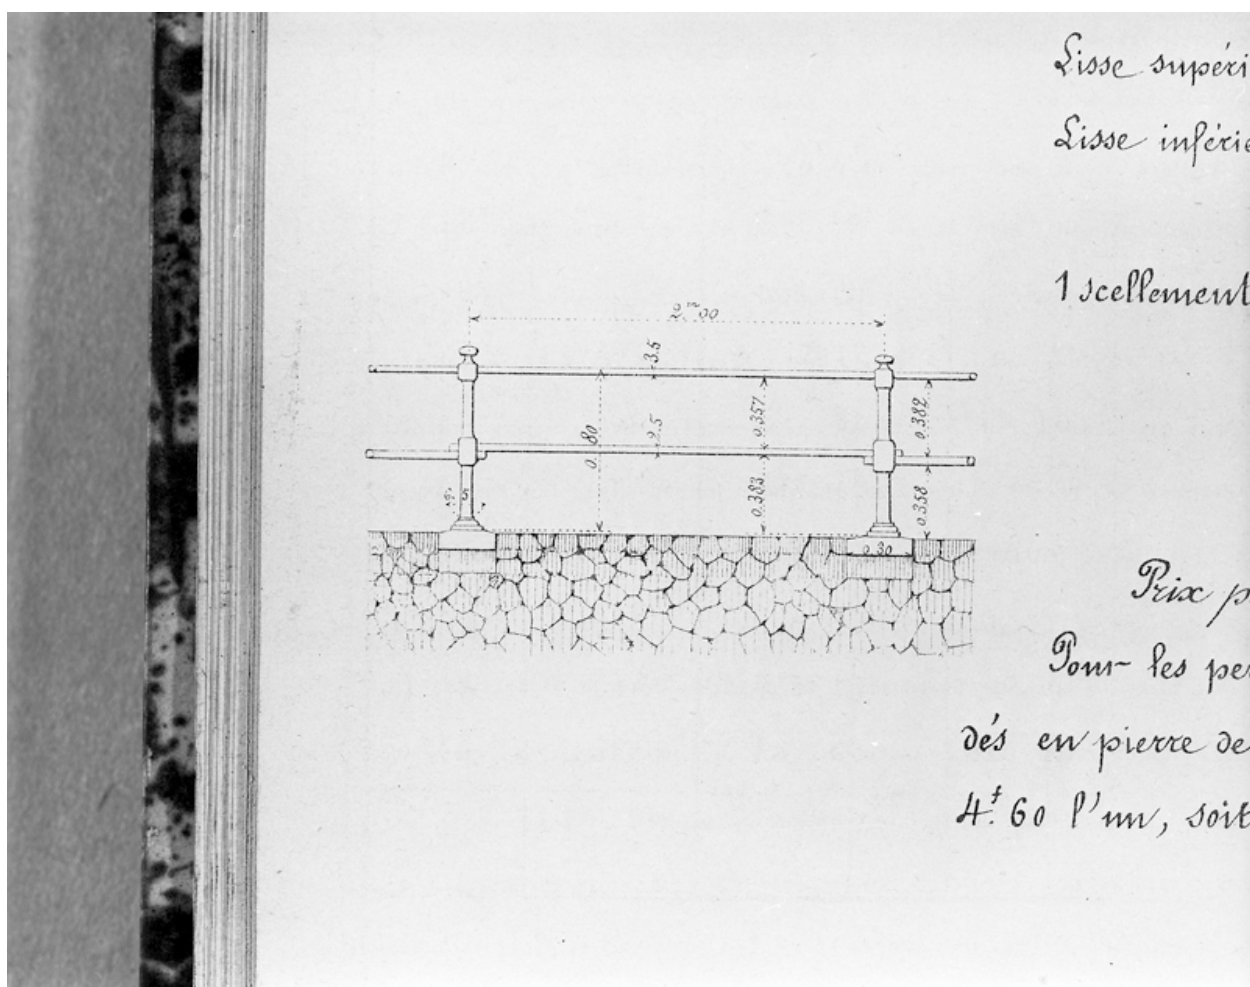 Lisse supéri
Lisse inférie
1 scellement
2.m00
3.5
0.80
2.5
0.357
0.382
0.383
0.358
5
0.30
Prix p
Pour les per
dés en pierre de
4.f 60 l'un, soit